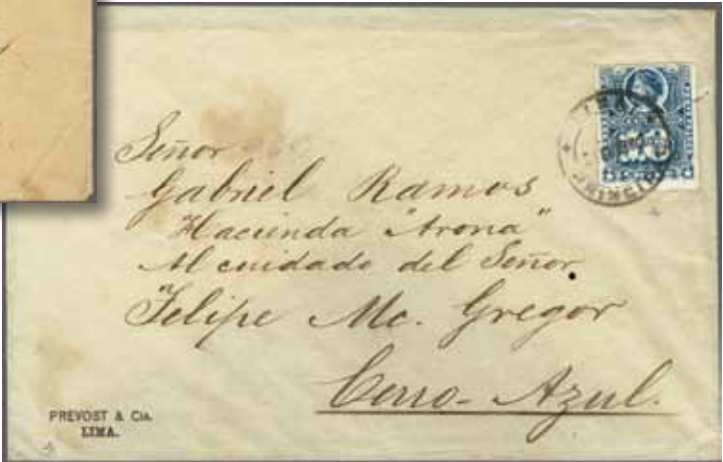 Señor
Gabriel Ramos
Hacienda "Arona"
Al cuidado del Señor
Felipe Mc. Gregor
Cerro-Azul.
PREVOST & CIA.
LIMA.
LIMA
PRINCIPAL